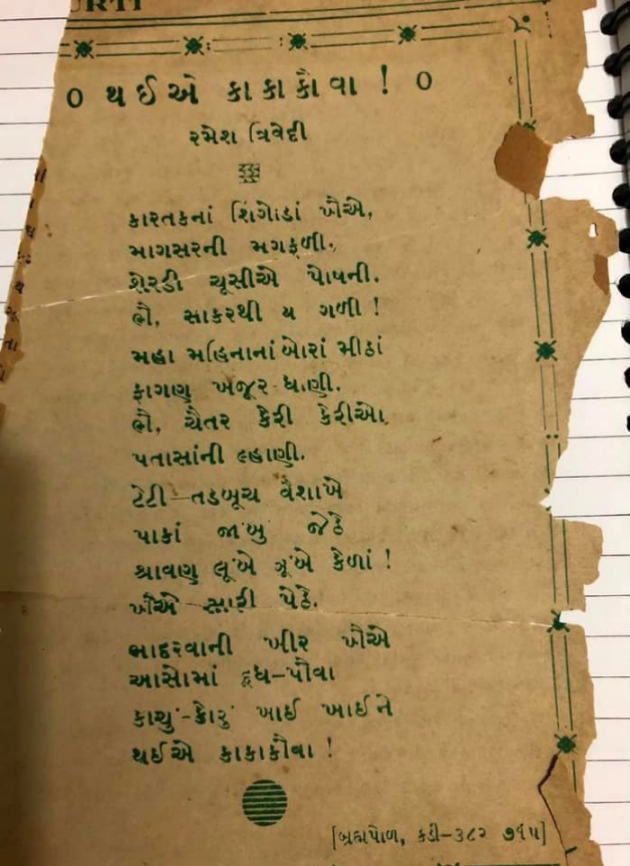 URTI
૦ થઈએ કાકાકૌવા ! ૦
રમેશ ત્રિવેદી
કારતકનાં શિંગોડાં ખૈએ,
માગસરની મગફળી,
શેરડી ચૂસીએ પોષની.
ભૈ, સાકરથી ય ગળી !
મહા મહિનાનાં બોરાં મીઠાં
ફાગણ ખજૂર-ધાણી.
ભૈ, ચૈતર કેરી કેરીઓ,
પતાસાંની લ્હાણી.
ટેટી-તડબૂચ વૈશાખે
પાકાં જાંબુ જેઠે
શ્રાવણ લૂંબે ઝૂંબે કેળાં !
ખૈએ સારી પેઠે.
ભાદરવાની ખીર ખૈએ
આસોમાં દૂધ-પૌવા
કાચું-કોરું ખાઈ ખાઈને
થઈએ કાકાકૌવા !
[બ્રહ્મપોળ, કડી-૩૮૨ ૭૧૫]